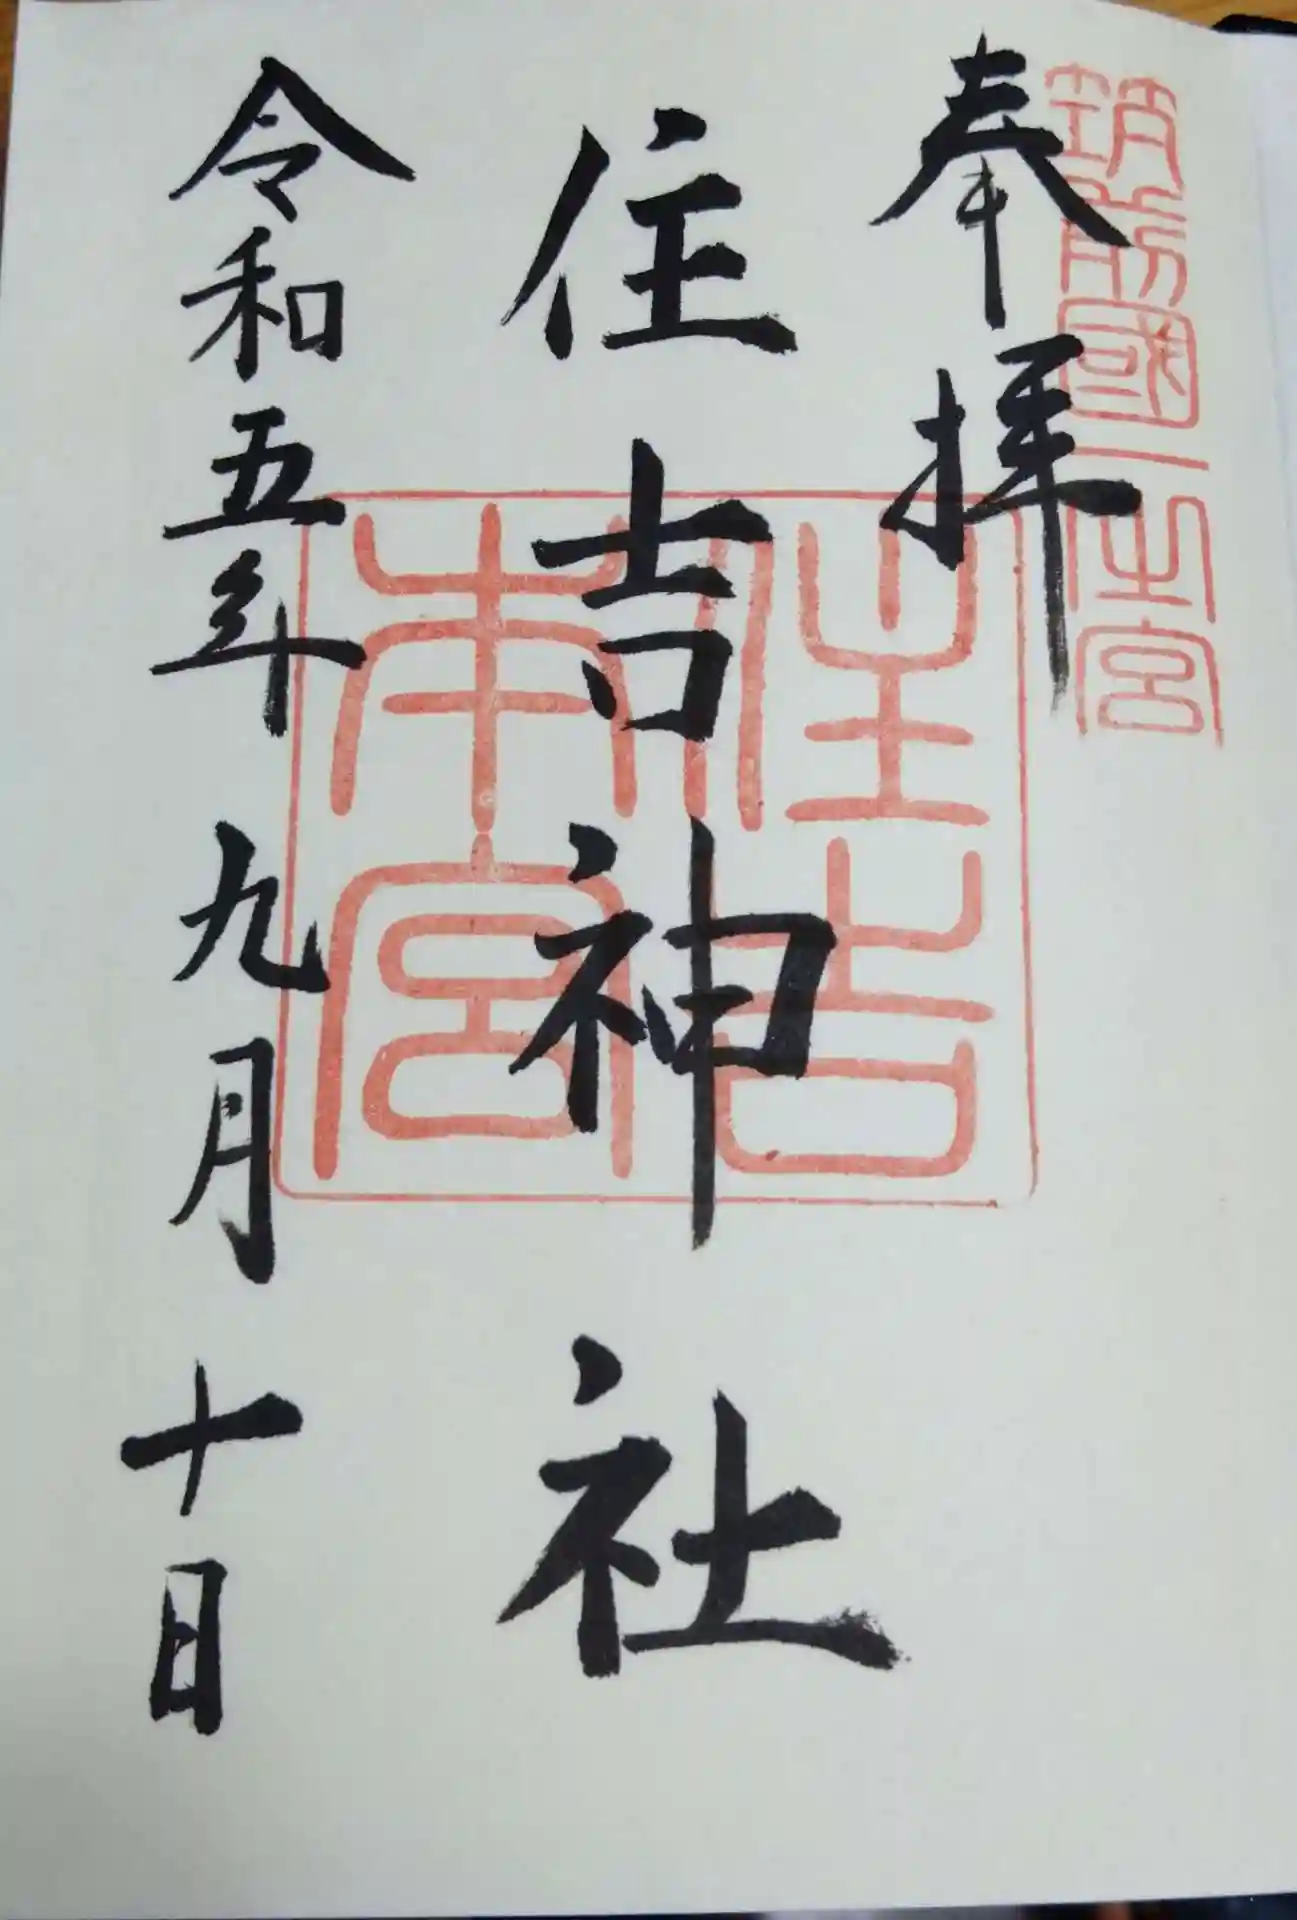 筑前國一之宮
奉拝
住吉神社
住吉
本宮
令和五年 九月 十日